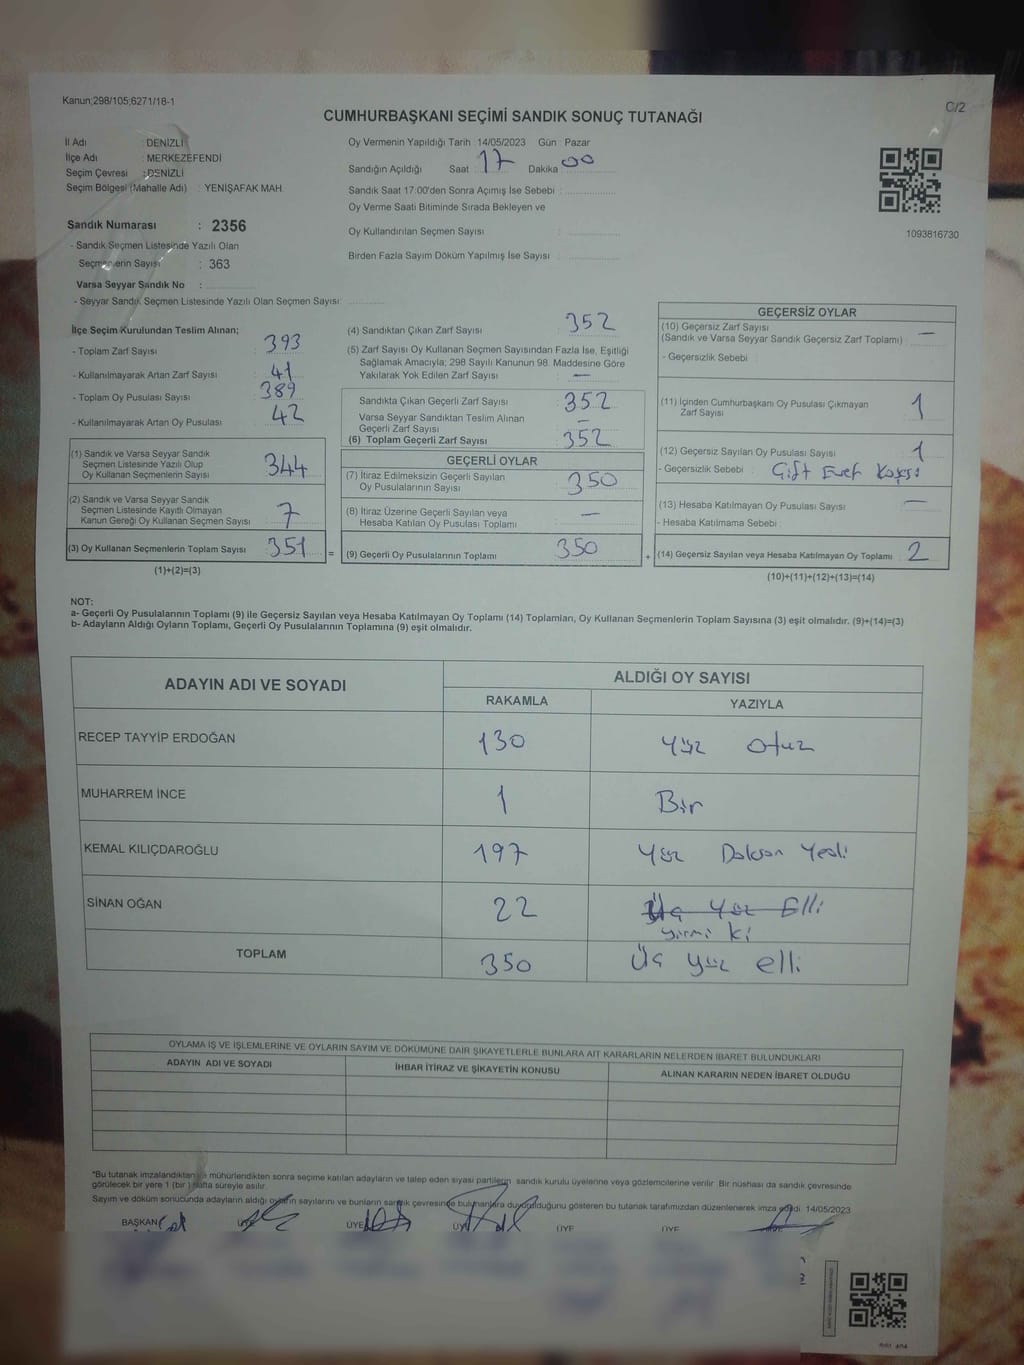 Kanun;298/105;6271/18-1
C/2
CUMHURBAŞKANI SEÇİMİ SANDIK SONUÇ TUTANAĞI
İl Adı : DENİZLİ
İlçe Adı : MERKEZEFENDİ
Seçim Çevresi : DENİZLİ
Seçim Bölgesi (Mahalle Adı) : YENİŞAFAK MAH.
Sandık Numarası : 2356
- Sandık Seçmen Listesinde Yazılı Olan
Seçmenlerin Sayısı : 363
Varsa Seyyar Sandık No :
- Seyyar Sandık Seçmen Listesinde Yazılı Olan Seçmen Sayısı:
Oy Vermenin Yapıldığı Tarih : 14/05/2023 Gün : Pazar
Sandığın Açıldığı Saat : 17 Dakika : 00
Sandık Saat 17:00'den Sonra Açımış İse Sebebi :
Oy Verme Saati Bitiminde Sırada Bekleyen ve
Oy Kullandırılan Seçmen Sayısı :
Birden Fazla Sayım Döküm Yapılmış İse Sayısı :
1093816730
İlçe Seçim Kurulundan Teslim Alınan;
- Toplam Zarf Sayısı : 393
- Kullanılmayarak Artan Zarf Sayısı : 41
- Toplam Oy Pusulası Sayısı : 389
- Kullanılmayarak Artan Oy Pusulası : 42
(1) Sandık ve Varsa Seyyar Sandık
Seçmen Listesinde Yazılı Olup
Oy Kullanan Seçmenlerin Sayısı : 344
(2) Sandık ve Varsa Seyyar Sandık
Seçmen Listesinde Kayıtlı Olmayan
Kanun Gereği Oy Kullanan Seçmen Sayısı : 7
(3) Oy Kullanan Seçmenlerin Toplam Sayısı : 351 =
(1)+(2)=(3)
(4) Sandıktan Çıkan Zarf Sayısı : 352
(5) Zarf Sayısı Oy Kullanan Seçmen Sayısından Fazla İse, Eşitliği
Sağlamak Amacıyla; 298 Sayılı Kanunun 98. Maddesine Göre
Yakılarak Yok Edilen Zarf Sayısı : —
Sandıkta Çıkan Geçerli Zarf Sayısı : 352
Varsa Seyyar Sandıktan Teslim Alınan
Geçerli Zarf Sayısı : —
(6) Toplam Geçerli Zarf Sayısı : 352
GEÇERLİ OYLAR
(7) İtiraz Edilmeksizin Geçerli Sayılan
Oy Pusulalarının Sayısı : 350
(8) İtiraz Üzerine Geçerli Sayılan veya
Hesaba Katılan Oy Pusulası Toplamı : —
(9) Geçerli Oy Pusulalarının Toplamı : 350 +
GEÇERSİZ OYLAR
(10) Geçersiz Zarf Sayısı
(Sandık ve Varsa Seyyar Sandık Geçersiz Zarf Toplamı) : —
- Geçersizlik Sebebi :
(11) İçinden Cumhurbaşkanı Oy Pusulası Çıkmayan
Zarf Sayısı : 1
(12) Geçersiz Sayılan Oy Pusulası Sayısı : 1
- Geçersizlik Sebebi : Çift Evet
(13) Hesaba Katılmayan Oy Pusulası Sayısı : —
- Hesaba Katılmama Sebebi :
(14) Geçersiz Sayılan veya Hesaba Katılmayan Oy Toplamı : 2
(10)+(11)+(12)+(13)=(14)
NOT:
a- Geçerli Oy Pusulalarının Toplamı (9) ile Geçersiz Sayılan veya Hesaba Katılmayan Oy Toplamı (14) Toplamları, Oy Kullanan Seçmenlerin Toplam Sayısına (3) eşit olmalıdır. (9)+(14)=(3)
b- Adayların Aldığı Oyların Toplamı, Geçerli Oy Pusulalarının Toplamına (9) eşit olmalıdır.
ADAYIN ADI VE SOYADI ALDIĞI OY SAYISI
RAKAMLA YAZIYLA
RECEP TAYYİP ERDOĞAN 130 Yüz otuz
MUHARREM İNCE 1 Bir
KEMAL KILIÇDAROĞLU 197 Yüz Doksan Yedi
SİNAN OĞAN 22 Üç Yüz Elli
yirmi ki
TOPLAM 350 Üç yüz elli
OYLAMA İŞ VE İŞLEMLERİNE VE OYLARIN SAYIM VE DÖKÜMÜNE DAİR ŞİKAYETLERLE BUNLARA AİT KARARLARIN NELERDEN İBARET BULUNDUKLARI
ADAYIN ADI VE SOYADI İHBAR İTİRAZ VE ŞİKAYETİN KONUSU ALINAN KARARIN NEDEN İBARET OLDUĞU
*Bu tutanak imzalandıktan ve mühürlendikten sonra seçime katılan adayların ve talep eden siyasi partilerin sandık kurulu üyelerine veya gözlemcilerine verilir. Bir nüshası da sandık çevresinde
görülecek bir yere 1 (bir) hafta süreyle asılır.
Sayım ve döküm sonucunda adayların aldığı oyların sayılarını ve bunların sandık çevresinde bulunanlara duyurulduğunu gösteren bu tutanak tarafımızdan düzenlenerek imza edildi. 14/05/2023
BAŞKAN ÜYE ÜYE ÜYE ÜYE ÜYE